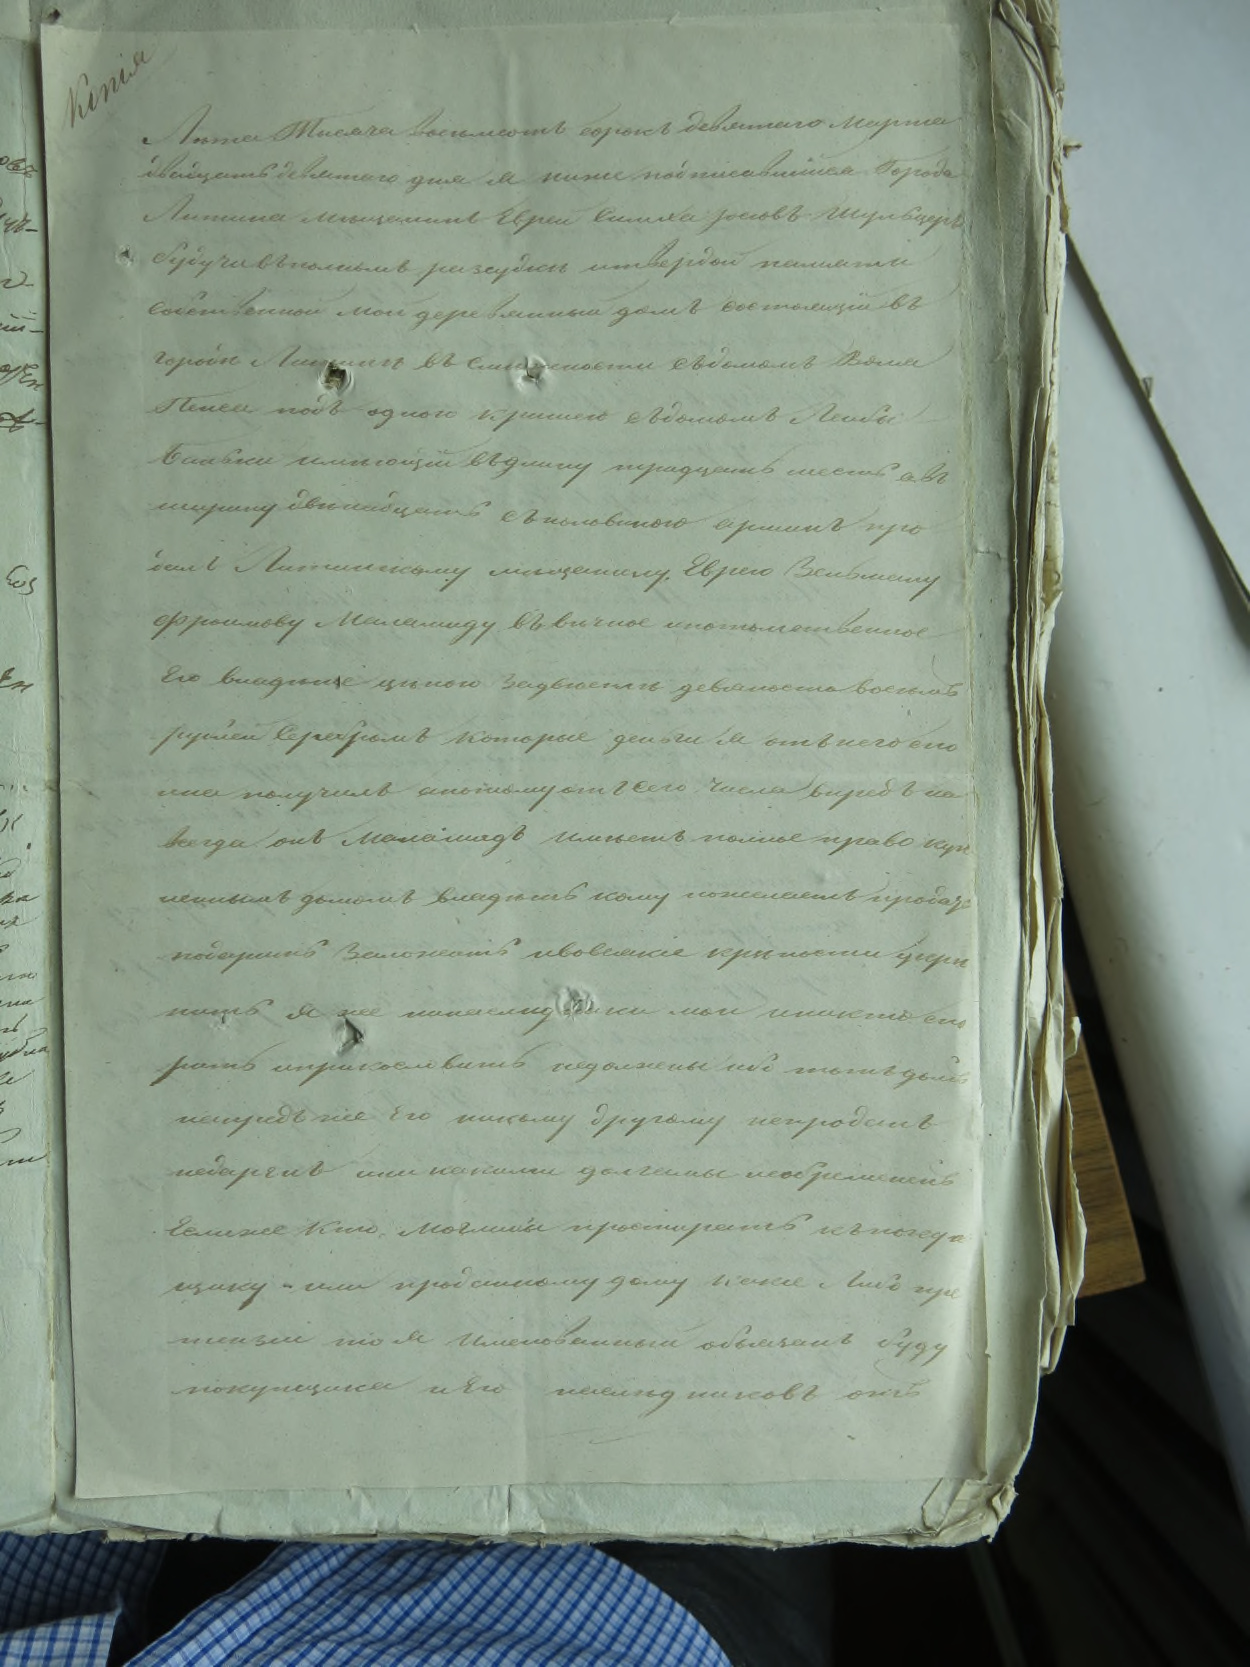 Копія
Лѣта Тысяча восемьсотъ сорокъ девятаго Марта
двадцать девятаго дня я ниже подписавшійся Города
Литина мѣщанинъ Еврей Симха
будучи въ полномъ разсудкѣ и твердой памяти
собственной мой деревянный домъ состоящій въ
городѣ Литинѣ въ смѣжности съ домомъ
подъ одною крышею съ домомъ Лейбы
имѣющій въ длину тридцать шесть а въ
ширину двѣнадцать съ половиною аршинъ про
далъ Литинскому мѣщанину Еврею Вельвелю
Фроимову Маламуду въ вѣчное и потомственное
его владѣніе цѣною за двѣсти девяносто восемъ
рублей серебромъ которые деньги я отъ него спо
лна получилъ а потому отъ сего числа впредь на
всегда онъ Маламудъ имѣетъ полное право куп
леннымъ домомъ владѣть кому пожелаетъ продать
подарить заложить и во всякіе крѣпости укрѣ
пить я же и наслѣдники мои и никто спо
рить и прикословить недолжены ибо тотъ домъ
напредь же Его никому другому непроданъ
неподаренъ и никакими долгами необремененъ
Если же кто могъ бы простирать къ покуп
щику или проданному дому какіе либо пре
тензіи то я имянованный обязанъ буду
покупщика и Его наслѣдниковъ отъ